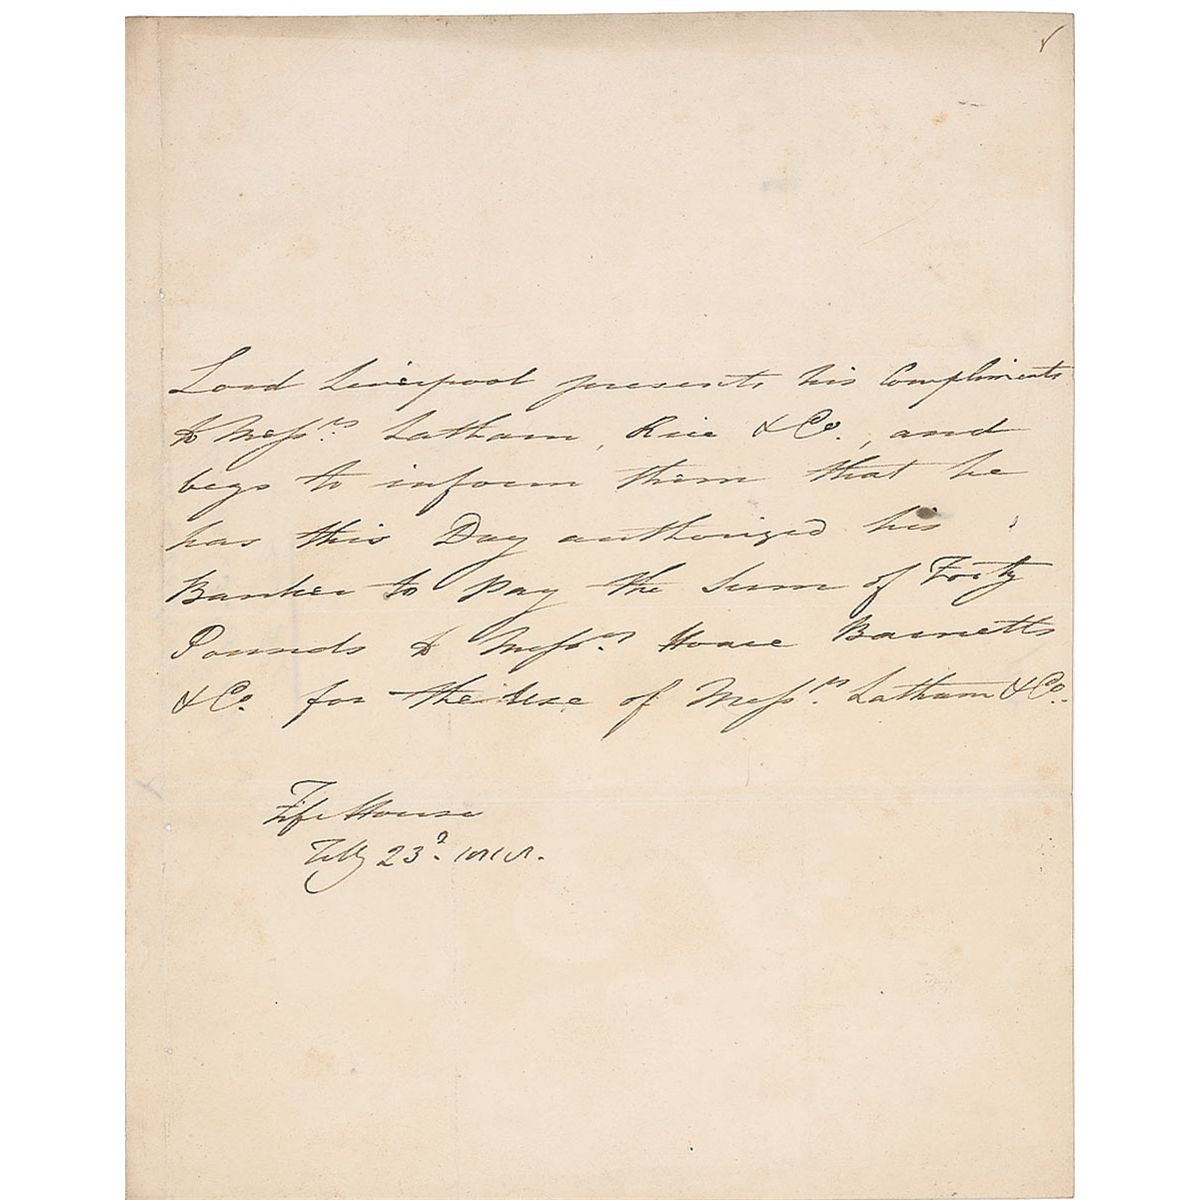 Lord Liverpool presents his Compliments
to Messrs. Latham, Rice & Co., and
begs to inform them that he
has this Day authorized his
Banker to pay the Sum of Forty
Pounds to Messrs. Hoare Barnetts
& Co. for the Use of Messrs. Latham & Co.
Fife House
Feby 23d.